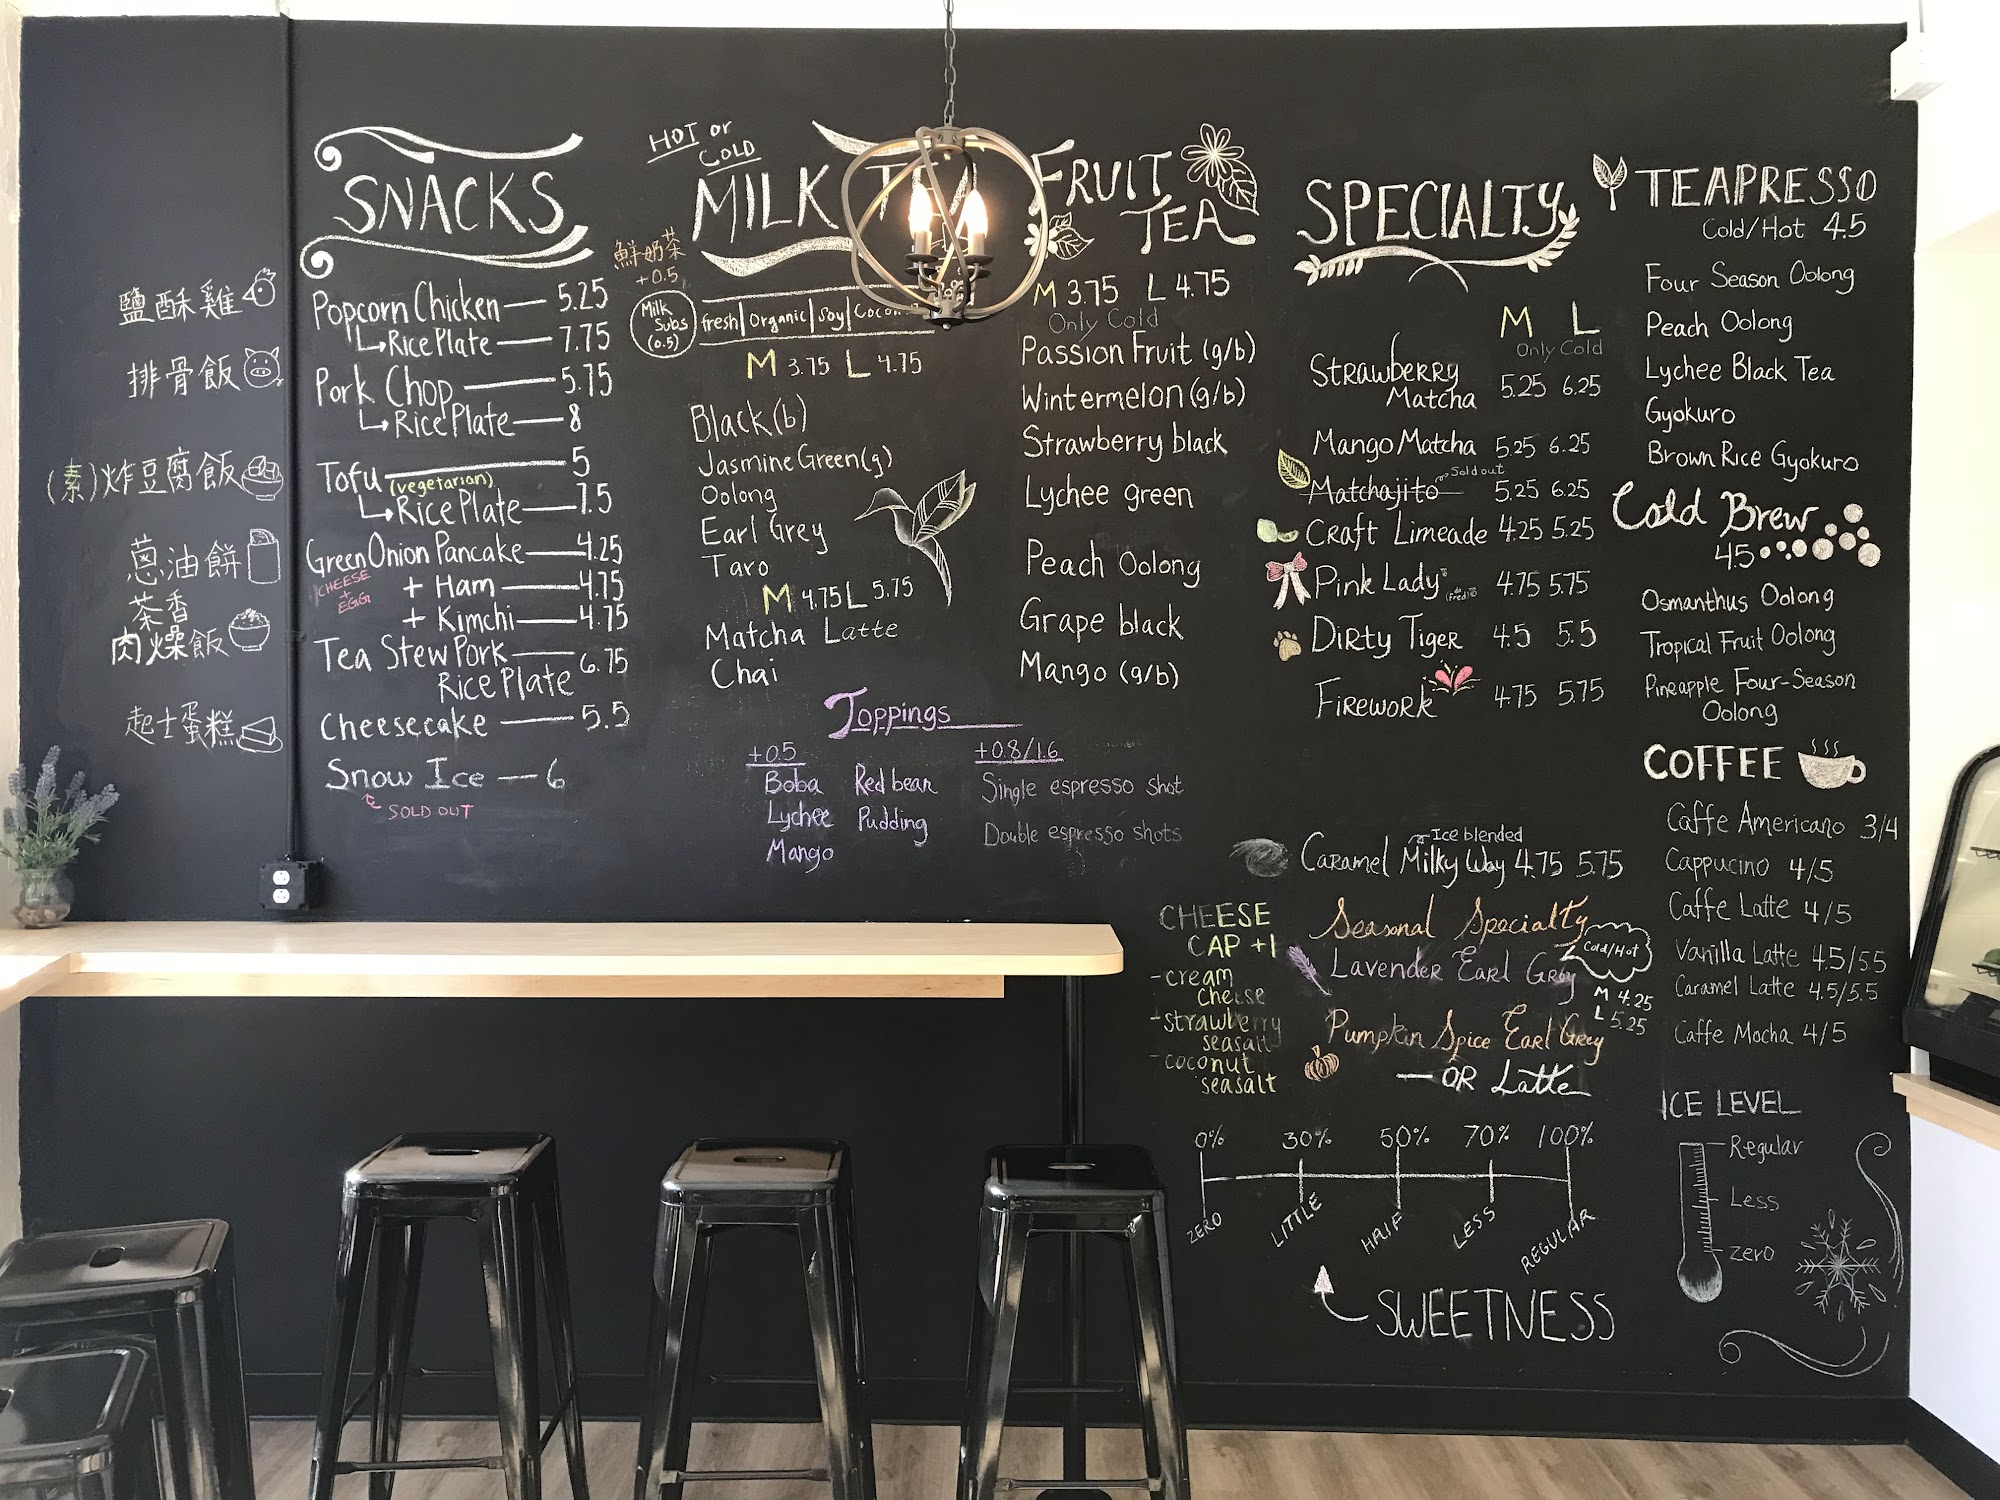 鹽酥雞
排骨飯
(素)炸豆腐飯
蔥油餅
茶香
肉燥飯
起士蛋糕
SNACKS
Popcorn Chicken — 5.25
↳ Rice Plate — 7.75
Pork Chop — 5.75
↳ Rice Plate — 8
Tofu — 5
(vegetarian)
↳ Rice Plate — 7.5
Green Onion Pancake — 4.25
CHEESE
+
EGG
+ Ham — 4.75
+ Kimchi — 4.75
Tea Stew Pork — 6.75
Rice Plate
Cheesecake — 5.5
Snow Ice — 6
SOLD OUT
HOT or
COLD
MILK TEA
鮮奶茶
+0.5
Milk
Subs
(0.5)
fresh | Organic | Soy |
M 3.75 L 4.75
Black (b)
Jasmine Green (g)
Oolong
Earl Grey
Taro
M 4.75 L 5.75
Matcha Latte
Chai
Toppings
+0.5
Boba Red bean
Lychee Pudding
Mango
+0.8/1.6
Single espresso shot
Double espresso shots
FRUIT
TEA
M 3.75 L 4.75
Only Cold
Passion Fruit (g/b)
Wintermelon (g/b)
Strawberry black
Lychee green
Peach Oolong
Grape black
Mango (g/b)
SPECIALTY
M L
Only Cold
Strawberry
Matcha 5.25 6.25
Mango Matcha 5.25 6.25
Sold out
Matchajito 5.25 6.25
Craft Limeade 4.25 5.25
Pink Lady 4.75 5.75
Dirty Tiger 4.5 5.5
Firework 4.75 5.75
Ice blended
Caramel Milky Way 4.75 5.75
CHEESE
CAP +1
- cream
cheese
- strawberry
seasalt
- coconut
seasalt
Seasonal Specialty
Cold/Hot
Lavender Earl Grey
M 4.25
L 5.25
Pumpkin Spice Earl Grey
— OR Latte
0% 30% 50% 70% 100%
ZERO LITTLE HALF LESS REGULAR
SWEETNESS
TEAPRESSO
Cold/Hot 4.5
Four Season Oolong
Peach Oolong
Lychee Black Tea
Gyokuro
Brown Rice Gyokuro
Cold Brew
4.5
Osmanthus Oolong
Tropical Fruit Oolong
Pineapple Four-Season
Oolong
COFFEE
Caffe Americano 3/4
Cappucino 4/5
Caffe Latte 4/5
Vanilla Latte 4.5/5.5
Caramel Latte 4.5/5.5
Caffe Mocha 4/5
ICE LEVEL
Regular
Less
zero